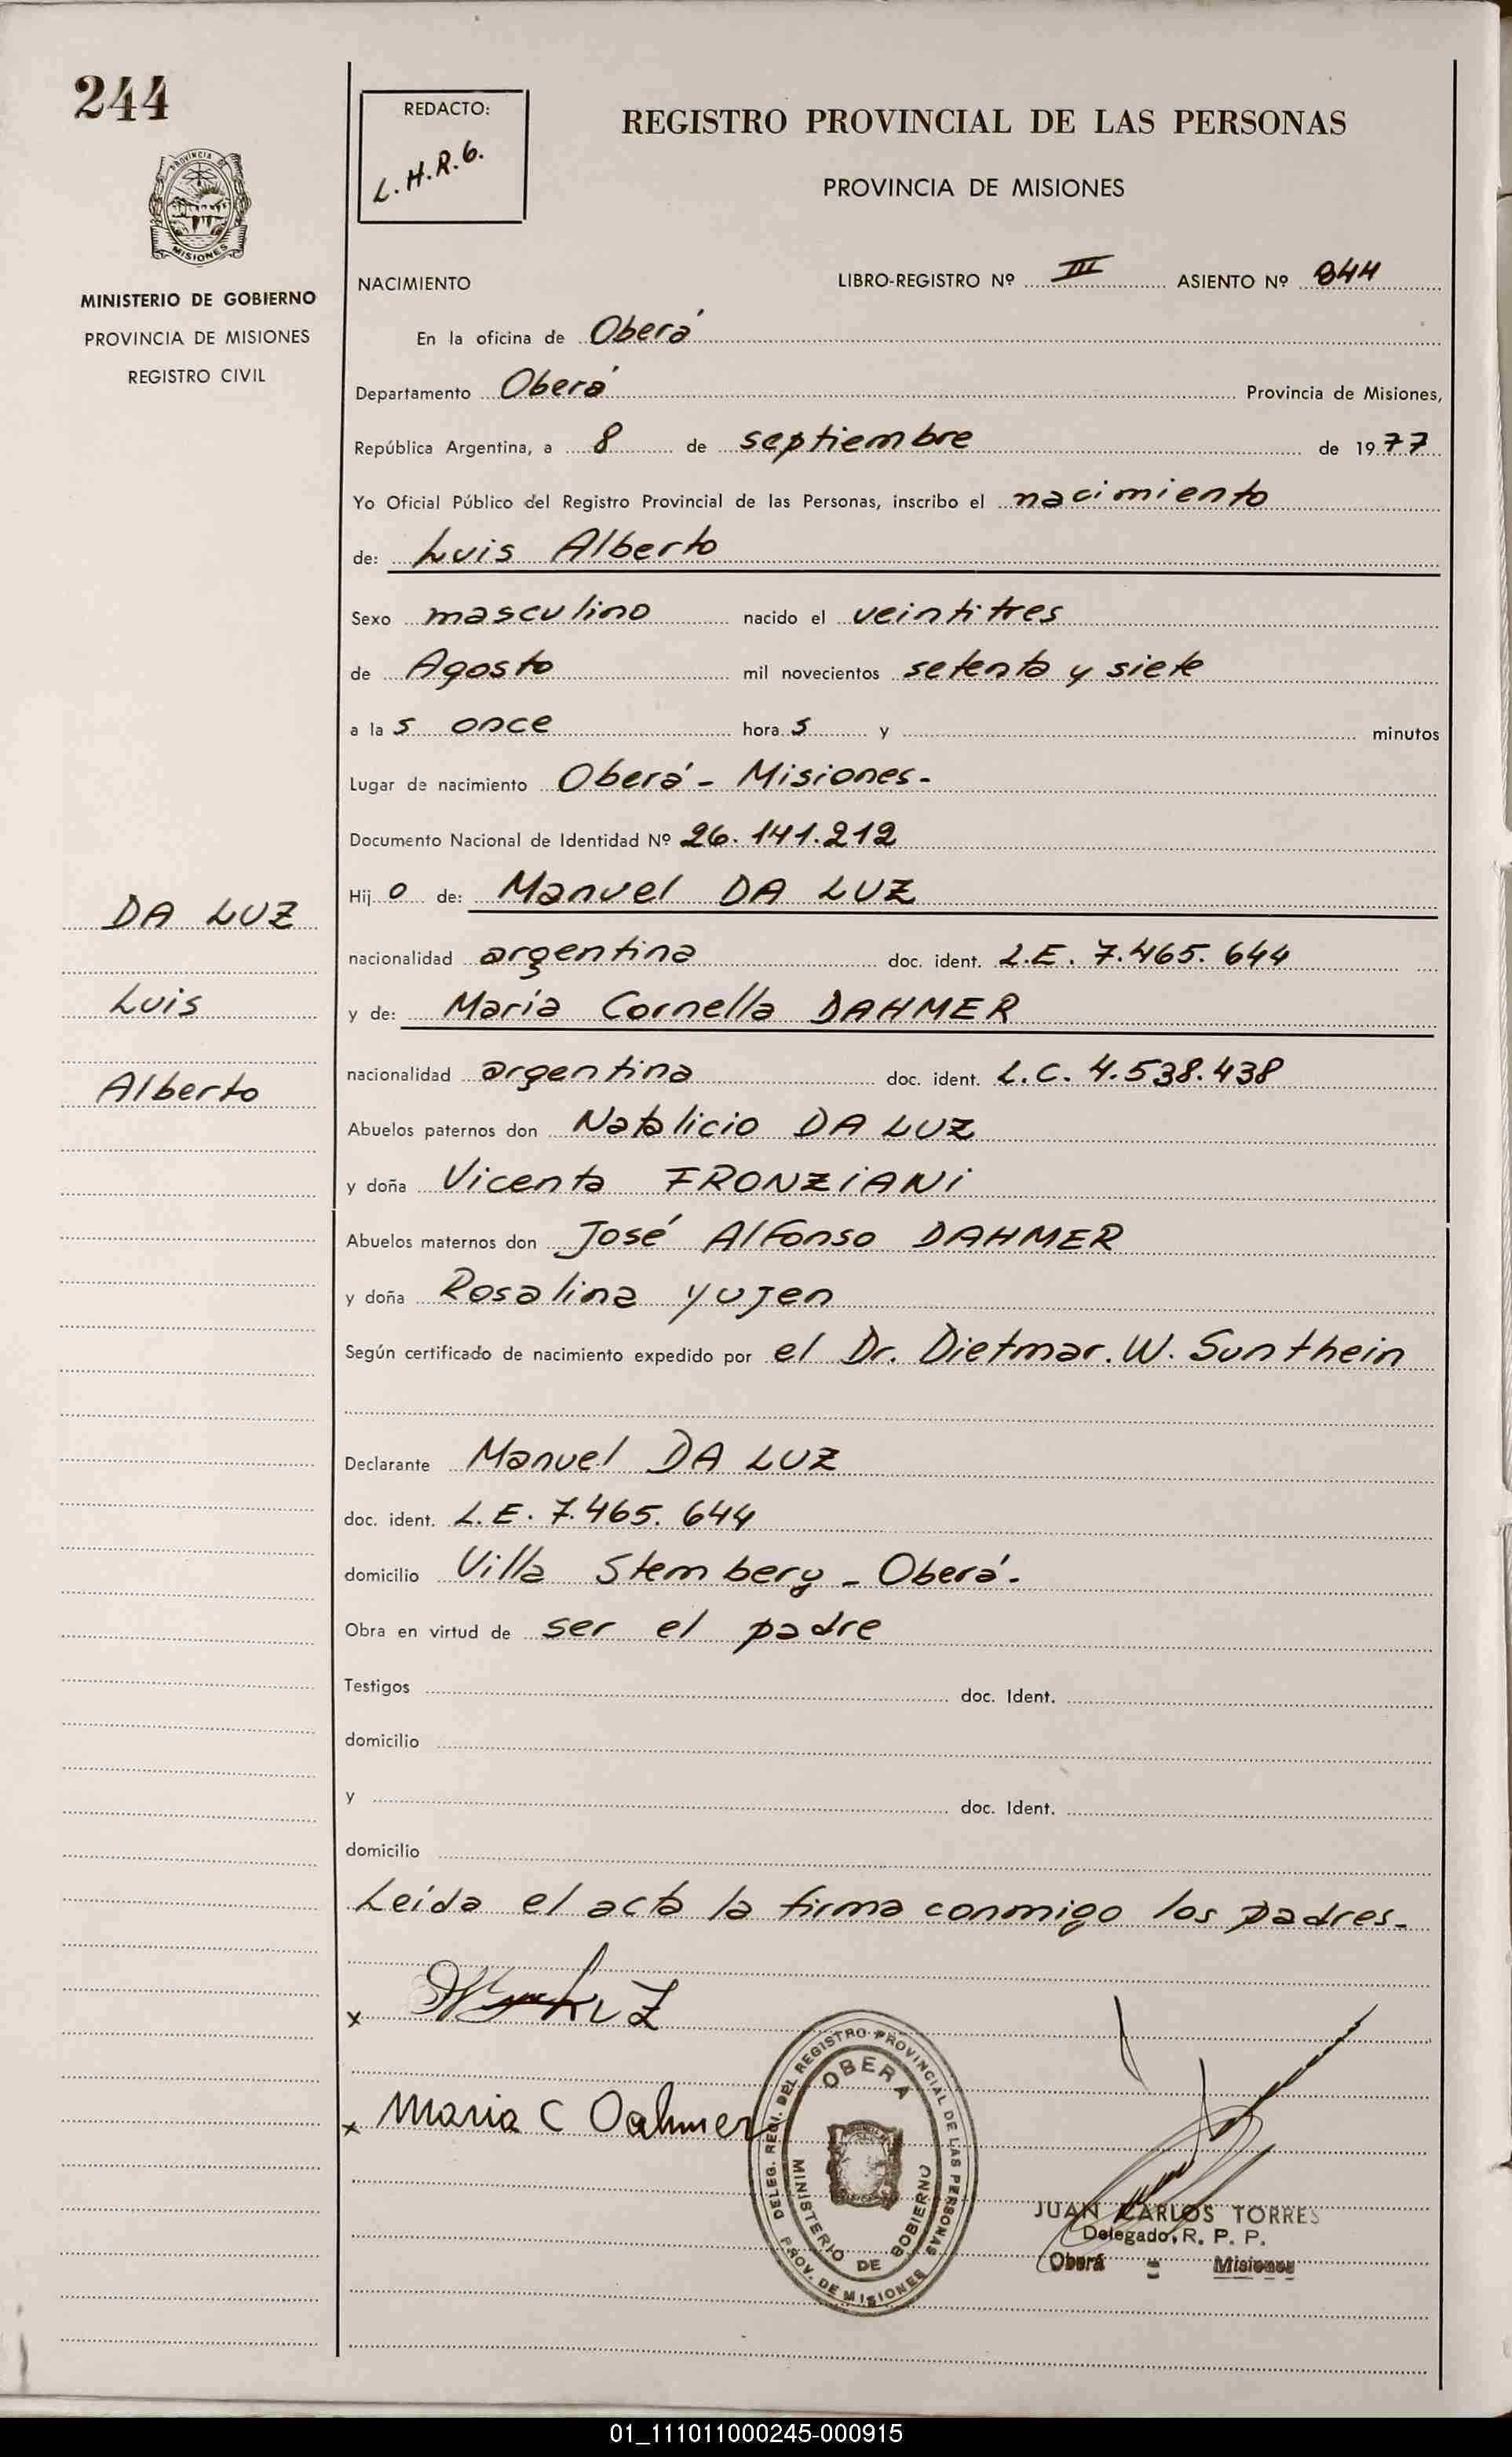 244
REDACTO:
L.H.R.G.
REGISTRO PROVINCIAL DE LAS PERSONAS
PROVINCIA DE MISIONES
PROVINCIA
MISIONES
MINISTERIO DE GOBIERNO
PROVINCIA DE MISIONES
REGISTRO CIVIL
NACIMIENTO LIBRO-REGISTRO Nº III ASIENTO Nº 844
En la oficina de Oberá
Departamento Oberá Provincia de Misiones,
República Argentina, a 8 de septiembre de 1977
Yo Oficial Público del Registro Provincial de las Personas, inscribo el nacimiento
de: Luis Alberto
Sexo masculino nacido el veintitres
de Agosto mil novecientos setenta y siete
a las once horas y minutos
Lugar de nacimiento Oberá - Misiones.
Documento Nacional de Identidad Nº 26.141.212
Hijo de: Manuel DA LUZ
DA LUZ
nacionalidad argentina doc. ident. L.E. 7.465.644
Luis
y de: María Cornella DAHMER
nacionalidad argentina doc. ident. L.C. 4.538.438
Alberto
Abuelos paternos don Natalicio DA LUZ
y doña Vicenta FRONZiANi
Abuelos maternos don José Alfonso DAHMER
y doña Rosalina Yujen
Según certificado de nacimiento expedido por el Dr. Dietmar. W. Sunthein
Declarante Manuel DA LUZ
doc. ident. L.E. 7.465.644
domicilio Villa Stemberg - Oberá.
Obra en virtud de ser el padre
Testigos doc. Ident.
domicilio
y doc. Ident.
domicilio
Leída el acta la firma conmigo los padres.
x LUZ
x Maria C Dahmer
DELEG. REGI. DEL REGISTRO PROVINCIAL DE LAS PERSONAS
PROV. DE MISIONES
OBERA
MINISTERIO DE GOBIERNO
JUAN CARLOS TORRES
Delegado, R. P. P.
Oberá - Misiones
01_111011000245-000915